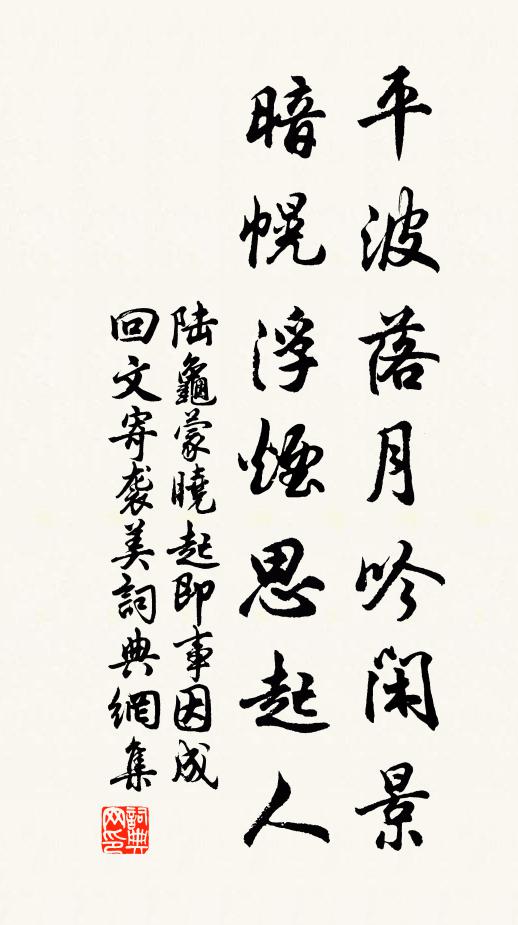 平波落月吟閑景
暗幌浮煙思起人
陆龜蒙曉起即事因成
回文寄袭美詞典網集
詞典网印